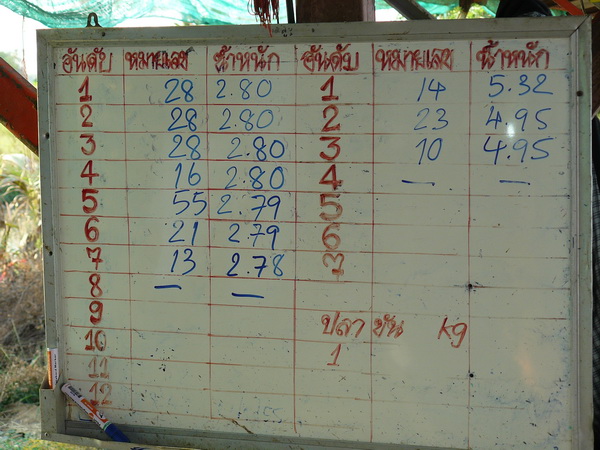 อันดับ หมายเลข น้ำหนัก อันดับ หมายเลข น้ำหนัก
1 28 2.80 1 14 5.32
2 28 2.80 2 23 4.95
3 28 2.80 3 10 4.95
4 16 2.80 4 — —
5 55 2.79 5
6 21 2.79 6
7 13 2.78 7
8 — —
9 ปลา ชัน kg
10 1
11
12